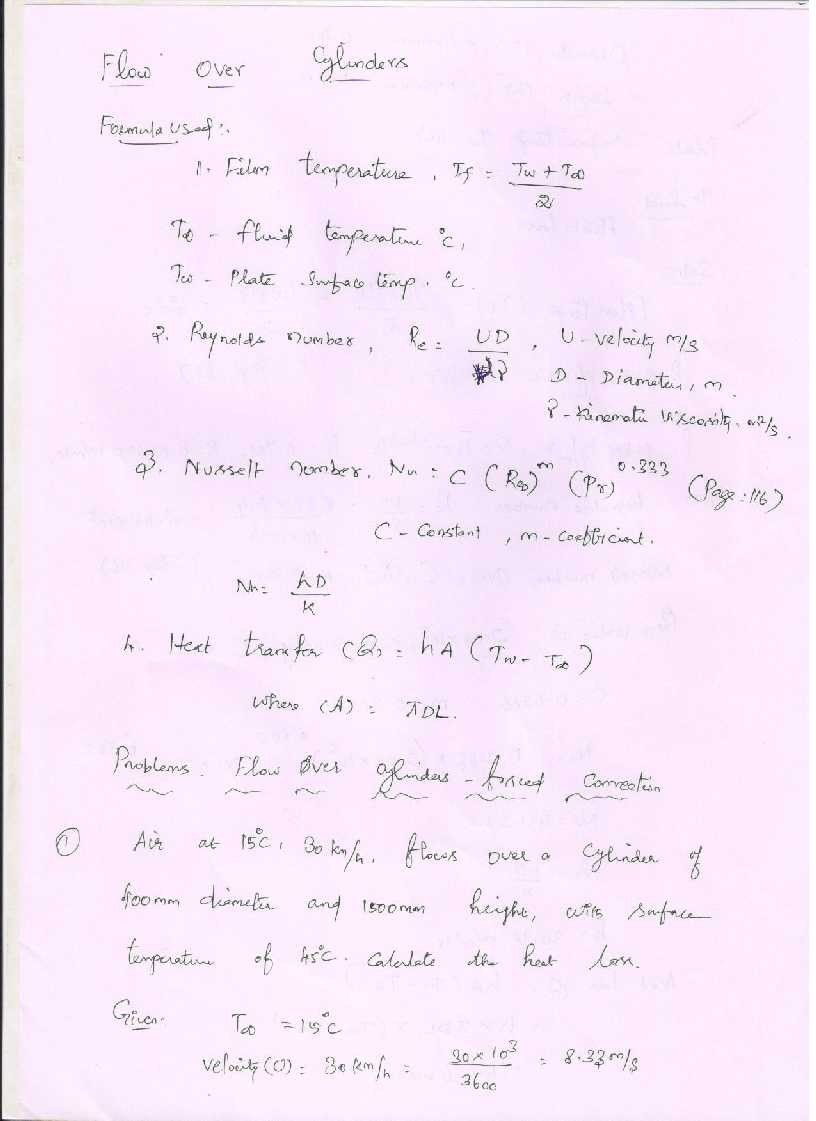 Flow Over Cylinders
Formula used:-
1. Film temperature, Tf = Tw + T∞ / 2
T∞ - fluid temperature °C,
Tw - Plate surface temp. °C.
2. Reynolds number, Re = UD / ν, U - velocity m/s
D - Diameter, m.
ν - Kinematic Viscosity, m²/s.
3. Nusselt number, Nu = C (Re)^m (Pr)^0.333 (Page: 116)
C - Constant, m - coefficient.
Nu = hD / K
4. Heat transfer (Q) = hA (Tw - T∞)
where (A) = πDL.
Problems. Flow Over cylinders - forced Convection
① Air at 15°C, 30 km/h, flows over a cylinder of
400mm diameter and 1500mm height, with surface
temperature of 45°C. Calculate the heat loss.
Given. T∞ = 15°C
Velocity (U) = 30 km/h = 30 x 10³ / 3600 = 8.33 m/s